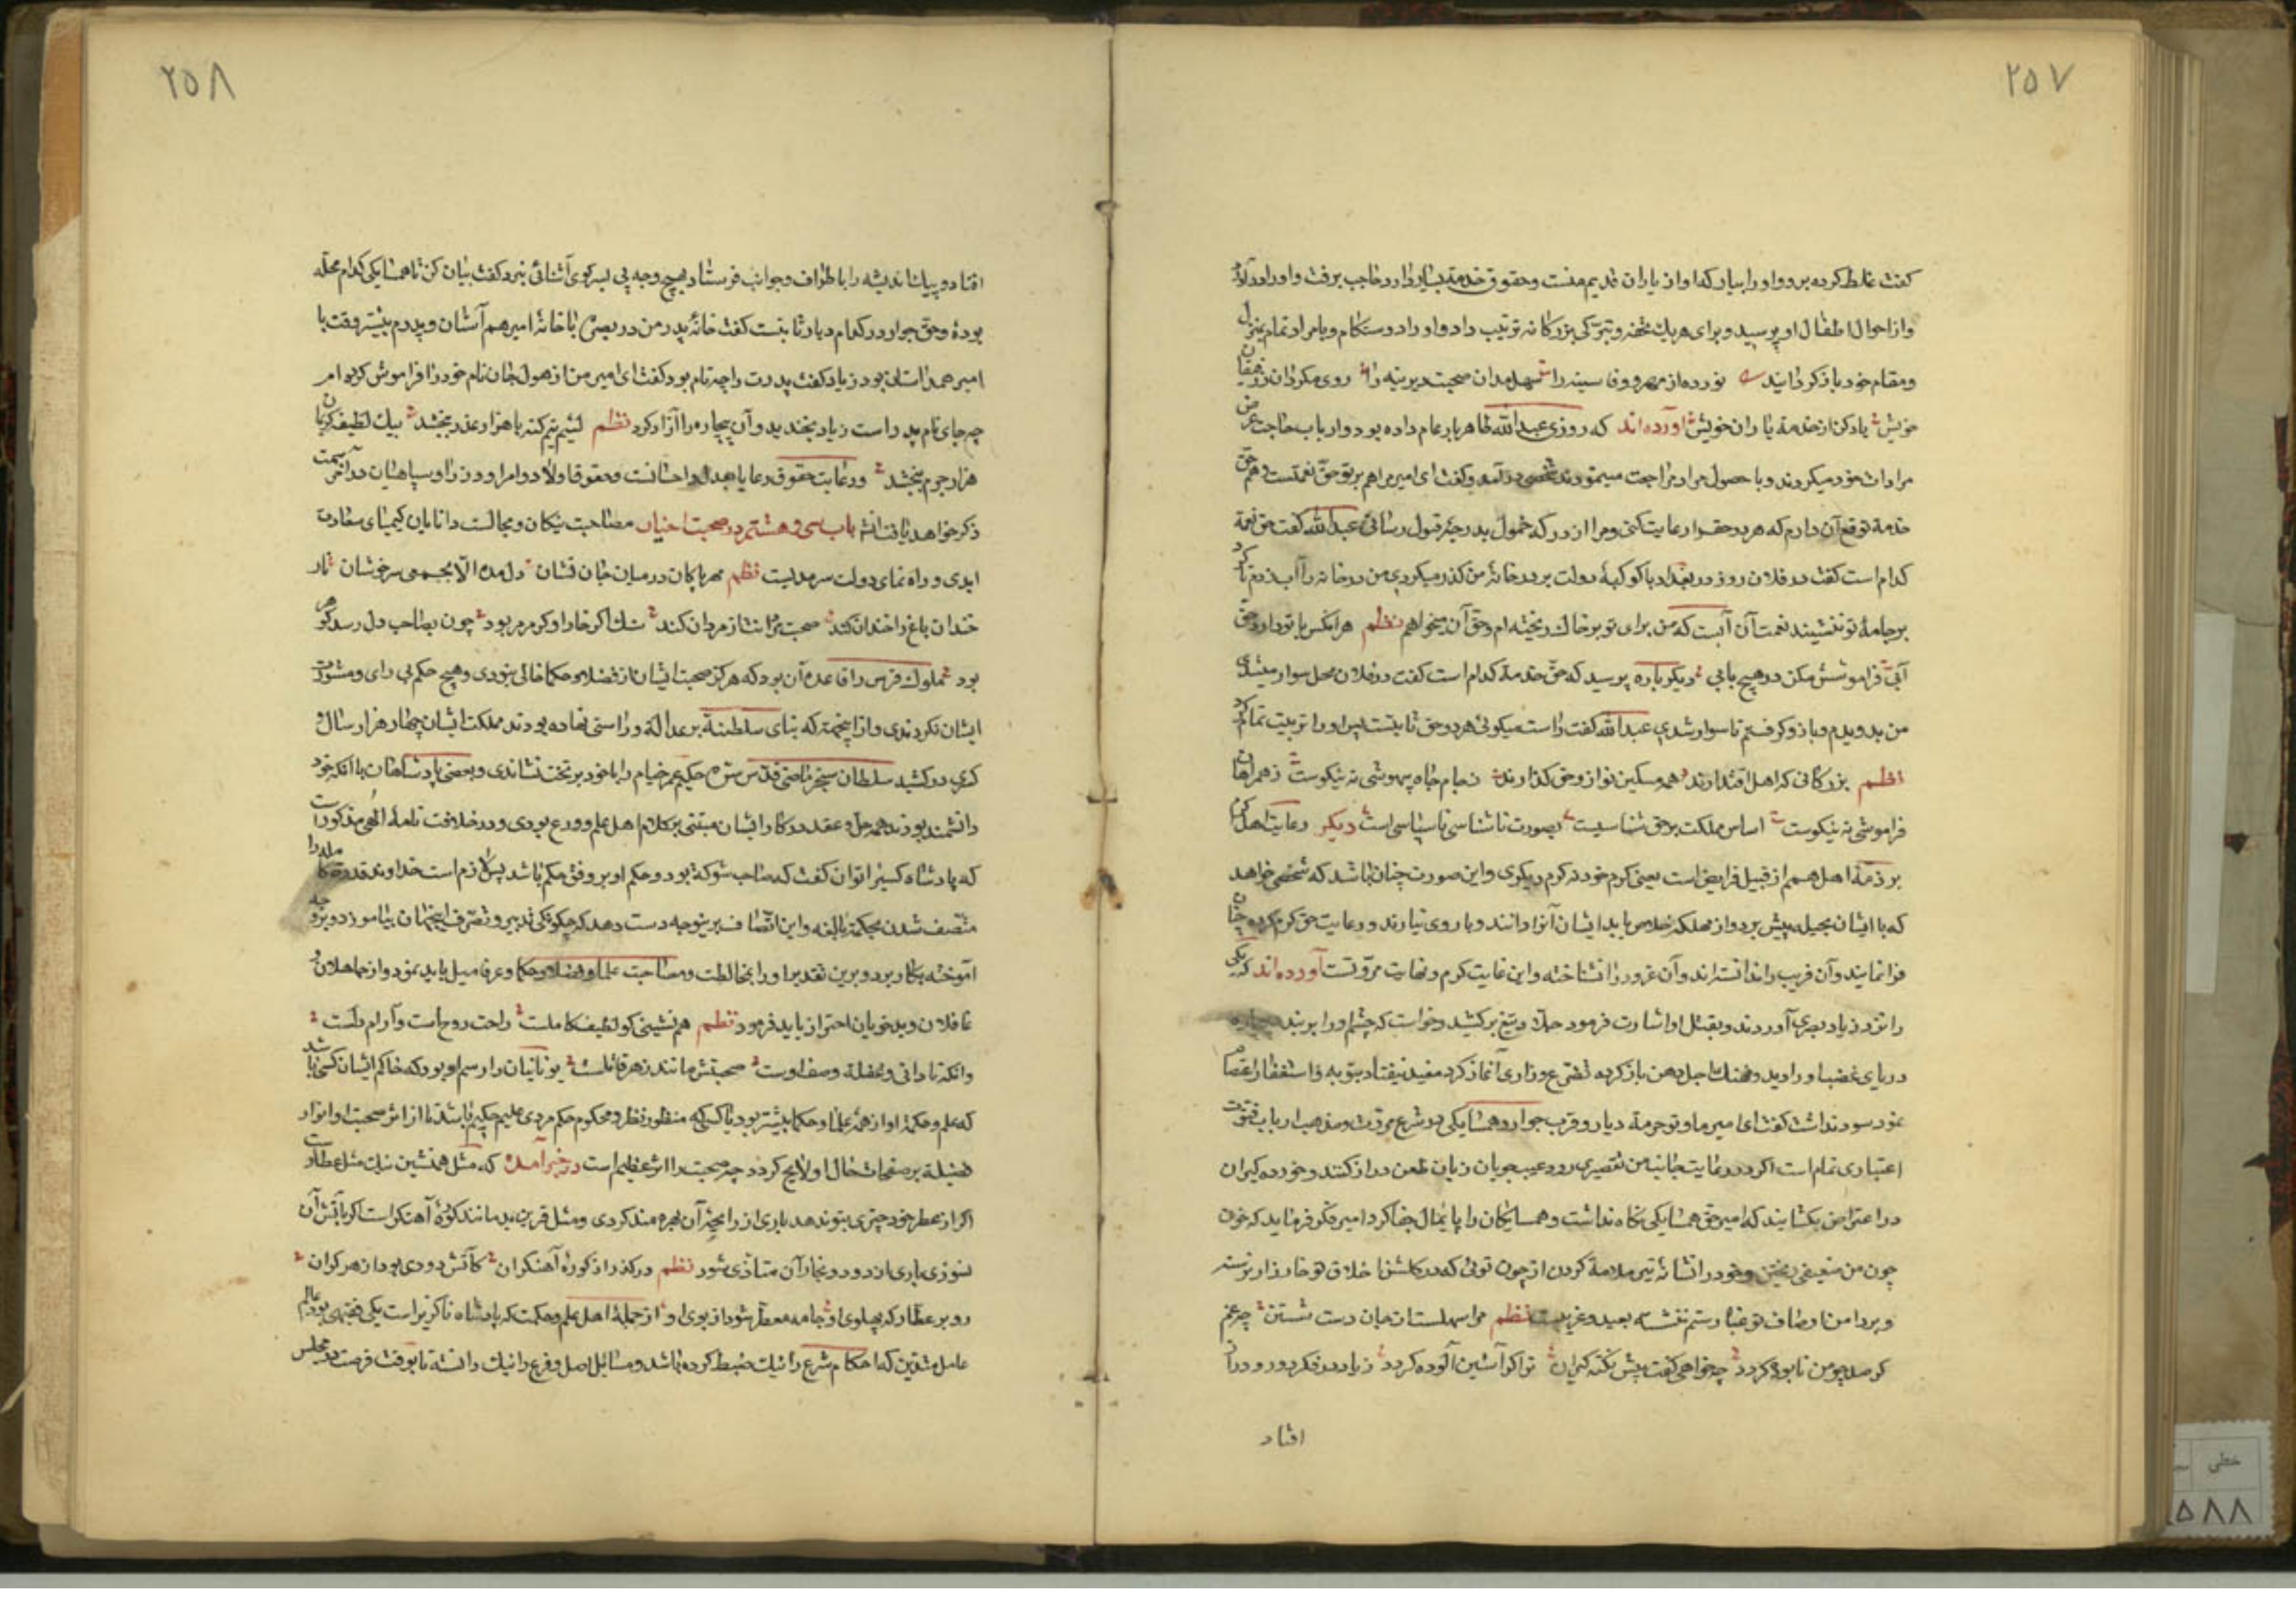 ۲۵۷
کفت غلط کرده برو و او را بیار که او از یاران قدیم منست و حقوق خدمت بسیار دارد حاجب برفت و او را درآورد
و از احوال اطفال او پرسید و برای هریك تحفه و تبرّکی بزرکانه ترتیب داد و او را دوستکام و بامراد تمام بمنزل
و مقام خود باز کردانید نو رده از مهر و وفا سینه را سهل مدان صحبت دیرینه را روی مکردان ز رفیقان
خویش یاد کن از خدمة یاران خویش آورده‌اند که روزی عبد الله طاهر بار عام داده بود و ارباب حاجت عرض
مرادات خود میکردند و با حصول مراد مراجعت مینمودند شخصی درآمد و کفت ای امیر مرا هم بر تو حقّ نعمتست و هم حقّ
خدمة توقع آن دارم که هر دو حق مرا رعایت کنی و مرا از درکه خمول بدرجهٔ قبول رسانی عبد الله کفت حق نعمة
کدام است کفت در فلان روز در بغداد با کوکبهٔ دولت بر در خانهٔ من کذر میکردی من در خانه را آب زدم تا کرد
بر جامهٔ تو ننشیند نعمت آن آبست که من برای تو بر خاك ریخته‌ام و حق آن میخواهم نظم هر آنکس با تو دارد حقّ
آبی فراموشش مکن در هیچ بابی دیکر باره پرسید که حق خدمة کدام است کفت در فلان محل سوار میشدی
من بدویدم و بازو کرفتم تا سوار شدی عبد الله کفت راست میکوئی هر دو حق ثابتست پس او را تربیت تمام کرد
نظم بزرکانی که اهل اقتدارند همه مسکین نواز و حق کذارند ز جام جاه بیهوشی نه نیکوست ز همراهان
فراموشی نه نیکوست اساس مملکت بر حق شناسیست بصورت ناشناسی ناسپاسی است دیکر رعایت اهل کرم
بر ذمّهٔ اهل همم از قبیل فرایض است یعنی کرم خود نه کرم دیکری و این صورت چنان باشد که شخصی خواهد
که با ایشان بحیله پیش برد و از مهلکه خلاص یابد ایشان آنرا دانند و با روی نیارند و رعایت حق کرم کرده چنان
فرا نمایند و آن فریب را ندانسته‌اند و آن غرور را نشناخته و این غایت کرم و نهایت مروّتست آورده‌اند که یکی
را نزد زیاد بصری آوردند و بقتل او اشارت فرمود جلاد تیغ برکشید و خواست که چشم او را بربندد بیچاره
دریای غضب او را دید و نهنك اجل دهن باز کرده تضرّع و زاری آغاز کرد مفید نیفتاد بتوبه و استغفار اعتصام
نمود سود نداشت کفت ای امیر ما و تو حرمة دیار و قرب جوار و همسایکی در شرع مروّت و مذهب ارباب فتوّت
اعتباری تمام است اکر در رعایت جانب من تقصیری رود عیب جویان زبان طعن دراز کنند و خورده کیران
در اعتراض بکشایند که امیر حق همسایکی نکاه نداشت و همسایکان را پایمال جفا کرد امیر فکر فرماید که خون
چون من ضعیفی ریختن و خود را نشانهٔ تیر ملامة کردن از چون توئی که در کلشن اخلاق تو خار آزار نرسته
و بر دامن اوصاف تو غبار ستم ننشسته بعید و غریبست نظم مرا سهلست از جان دست شستن چه غم
کر صد چو من نابود کردد چه خواهی کفت پیش نکته کیران ترا کر آستین آلوده کردد زیاد در فکر دور و دراز
افتاد
۲۵۸
افتاد و پیك اندیشه را باطراف و جوانب فرستاد بهیچ وجه پی بسر کوی آشنائی نبرد کفت بیان کن تا همسایکی کدام محلّه
بودهٔ و حق جوار در کدام دیار ثابتست کفت خانهٔ پدر من در بصره با خانهٔ امیر هم آستان و پدرم بیشتر وقت با
امیر همداستان بود زیاد کفت پدرت را چه نام بود کفت ای امیر من از هول جان نام خود را فراموش کرده‌ام
چه جای نام پدر است زیاد بخندید و آن بیچاره را آزاد کرد نظم لئیم نیم کنه با هزار عذر بخشد بیك لطیفه کریمان
هزار جرم ببخشد و رعایت حقوق رعایا بعدل و احسانست و حقوق اولاد و امرا و وزرا و سپاهیان در آخر سمت
ذکر خواهد یافت انشه باب سی و هشتم در صحبت اخیار مصاحبت نیکان و مجالست دانایان کیمیای سعادت
ابدی و راه نمای دولت سرمدیست نظم مهر پاکان در میان جان نشان دل مده الّا بجمعی سرخوشان نار
خندان باغ را خندان کند صحبت مردانت از مردان کند سنك اکر خارا و کر مرمر بود چون بصاحب دل رسد کوهر
بود ملوك فرس را قاعده آن بود که هرکز صحبت ایشان از فضلا و حکما خالی نبودی و هیچ حکم بی رای و مشورت
ایشان نکردندی و از اینجهة که بنای سلطنة بر عدالة و راستی نهاده بودند مملکت ایشان چهار هزار سال و
کسری درکشید سلطان سنجر ماضی قدّس سرّه حکیم عمر خیام را با خود بر تخت نشاندی و بعضی پادشاهان با آنکه خود
دانشمند بودند همه حل و عقد در کار ایشان مبتنی بر کلام اهل علم و ورع بودی و در خلافت نامهٔ الهی مذکور است
که پادشاه کسیرا توان کفت که صاحب شوکة بود و حکم او بر وفق حکم باشد پس لازم است خداوند قدرت کامله را
متّصف شدن بحکمة بالغه و این اتّصاف بدینوجه دست دهد که چکونکی تدبیر و تصرّف اینجهان بیاموزد و بر وجه
آموخته بکار برد و برین تقدیر او را بمخالطت و مصاحبت علما و فضلا و حکما و عرفا میل باید نمود و از جاهلان و
غافلان و بدخویان احتراز باید فرمود نظم هم نشینی کو لطیف کاملست راحت روح است و آرام دلست
وانکه نادانی و غفلة وصف اوست صحبتش مانند زهر قاتلست یونانیان را رسم او بود که حاکم ایشان کسی باشد
که علم و حکمة او از همهٔ علما و حکما بیشتر بود یا کسی که منظور نظر و محکوم حکم مردی علیم حکیم باشد تا از اثر صحبت او انوار
فضیلة بر صفحات حال او لایح کردد چه صحبت را اثر عظیم است در خبر آمده که مثل همنشین نیك مثل عطار است
اکر از عطر خود چیزی بتو ندهد باری از رایحهٔ آن بهره مند کردی و مثل قرین بد مانند کورهٔ آهنکر است کر باتش آن
نسوزی باری از دود و بخار آن متاذّی شوی نظم درکذر از کورهٔ آهنکران کآتش و دودی بود از هر کران
رو بر عطّار که پهلوی او جامه معطّر شود از بوی او از جملهٔ اهل علم و حکمت که پادشاه ناکزیر است یکی فقیهی بود عالم
عامل متدّین که احکام شرع را نیك ضبط کرده باشد و مسائل اصل و فرع را نیك دانسته تا بوقت فرصت در مجلس
خطی
۵۸۸